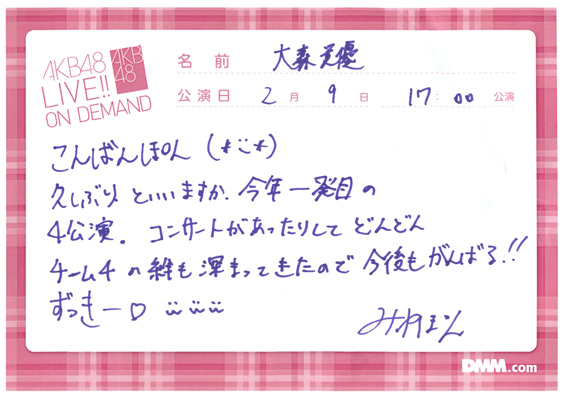 AKB48
LIVE!!
ON DEMAND
AKB
48
名前 大森美優
公演日 2月9日 17:00 公演
こんばんぽん (*¨*)
久しぶり といいますか、今年一発目の
4公演。コンサートがあったりして どんどん
チーム4 の絆も深まってきたので 今後もがんばる!!
ずっきー♡ ¨ ¨ ¨
みゆぽん
DMM.com